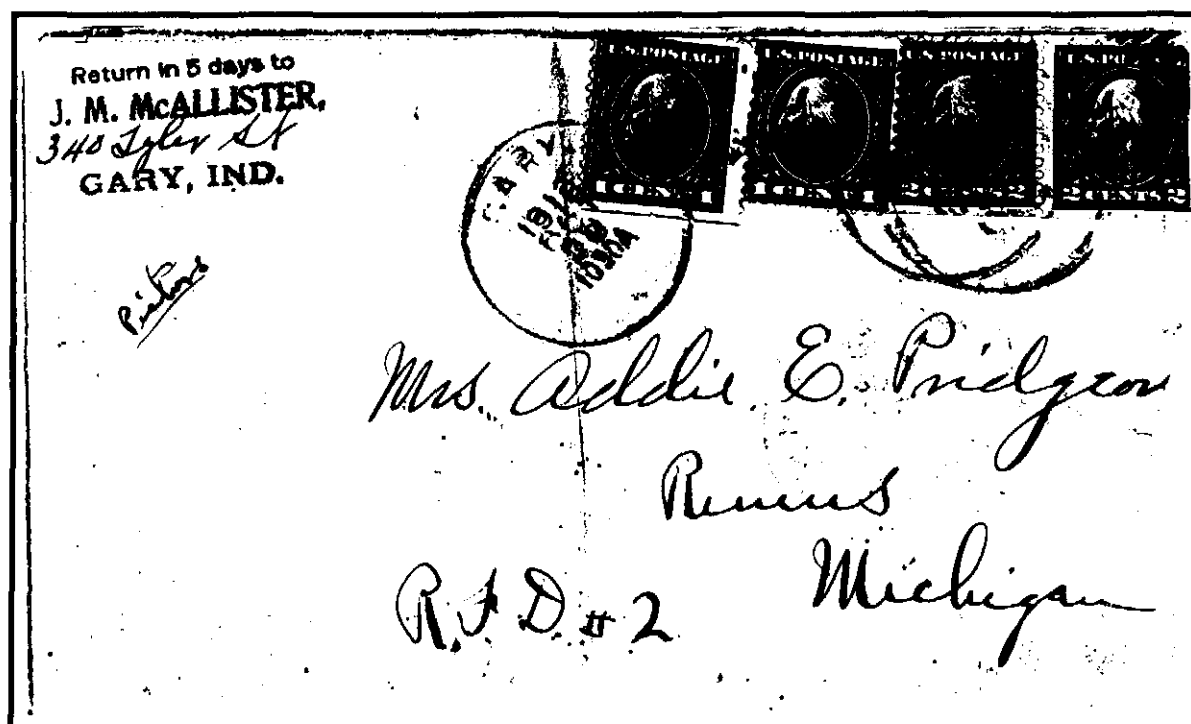 Return in 5 days to
J. M. McALLISTER,
340 Tyler St
GARY, IND.
U.S. POSTAGE
1 CENT 1
U.S. POSTAGE
1 CENT 1
U.S. POSTAGE
2 CENTS 2
U.S. POSTAGE
2 CENTS 2
GARY
Mrs. Addie. E. Pridgeon
Remus
Michigan
R.F.D. # 2